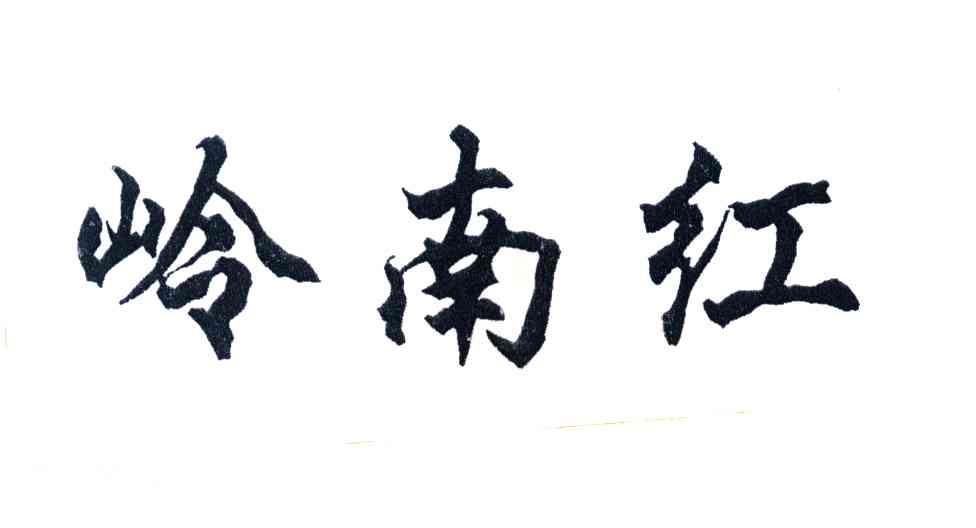 岭南红